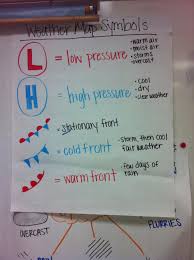 Weather Map Symbols
L = low pressure
- warm air
- moist air
- storms
- overcast
H = high pressure
- cool
- dry
- clear weather
= stationary front
= cold front
- storm, then cool fair weather
= warm front
- few days of rain
OVERCAST
FLURRIES